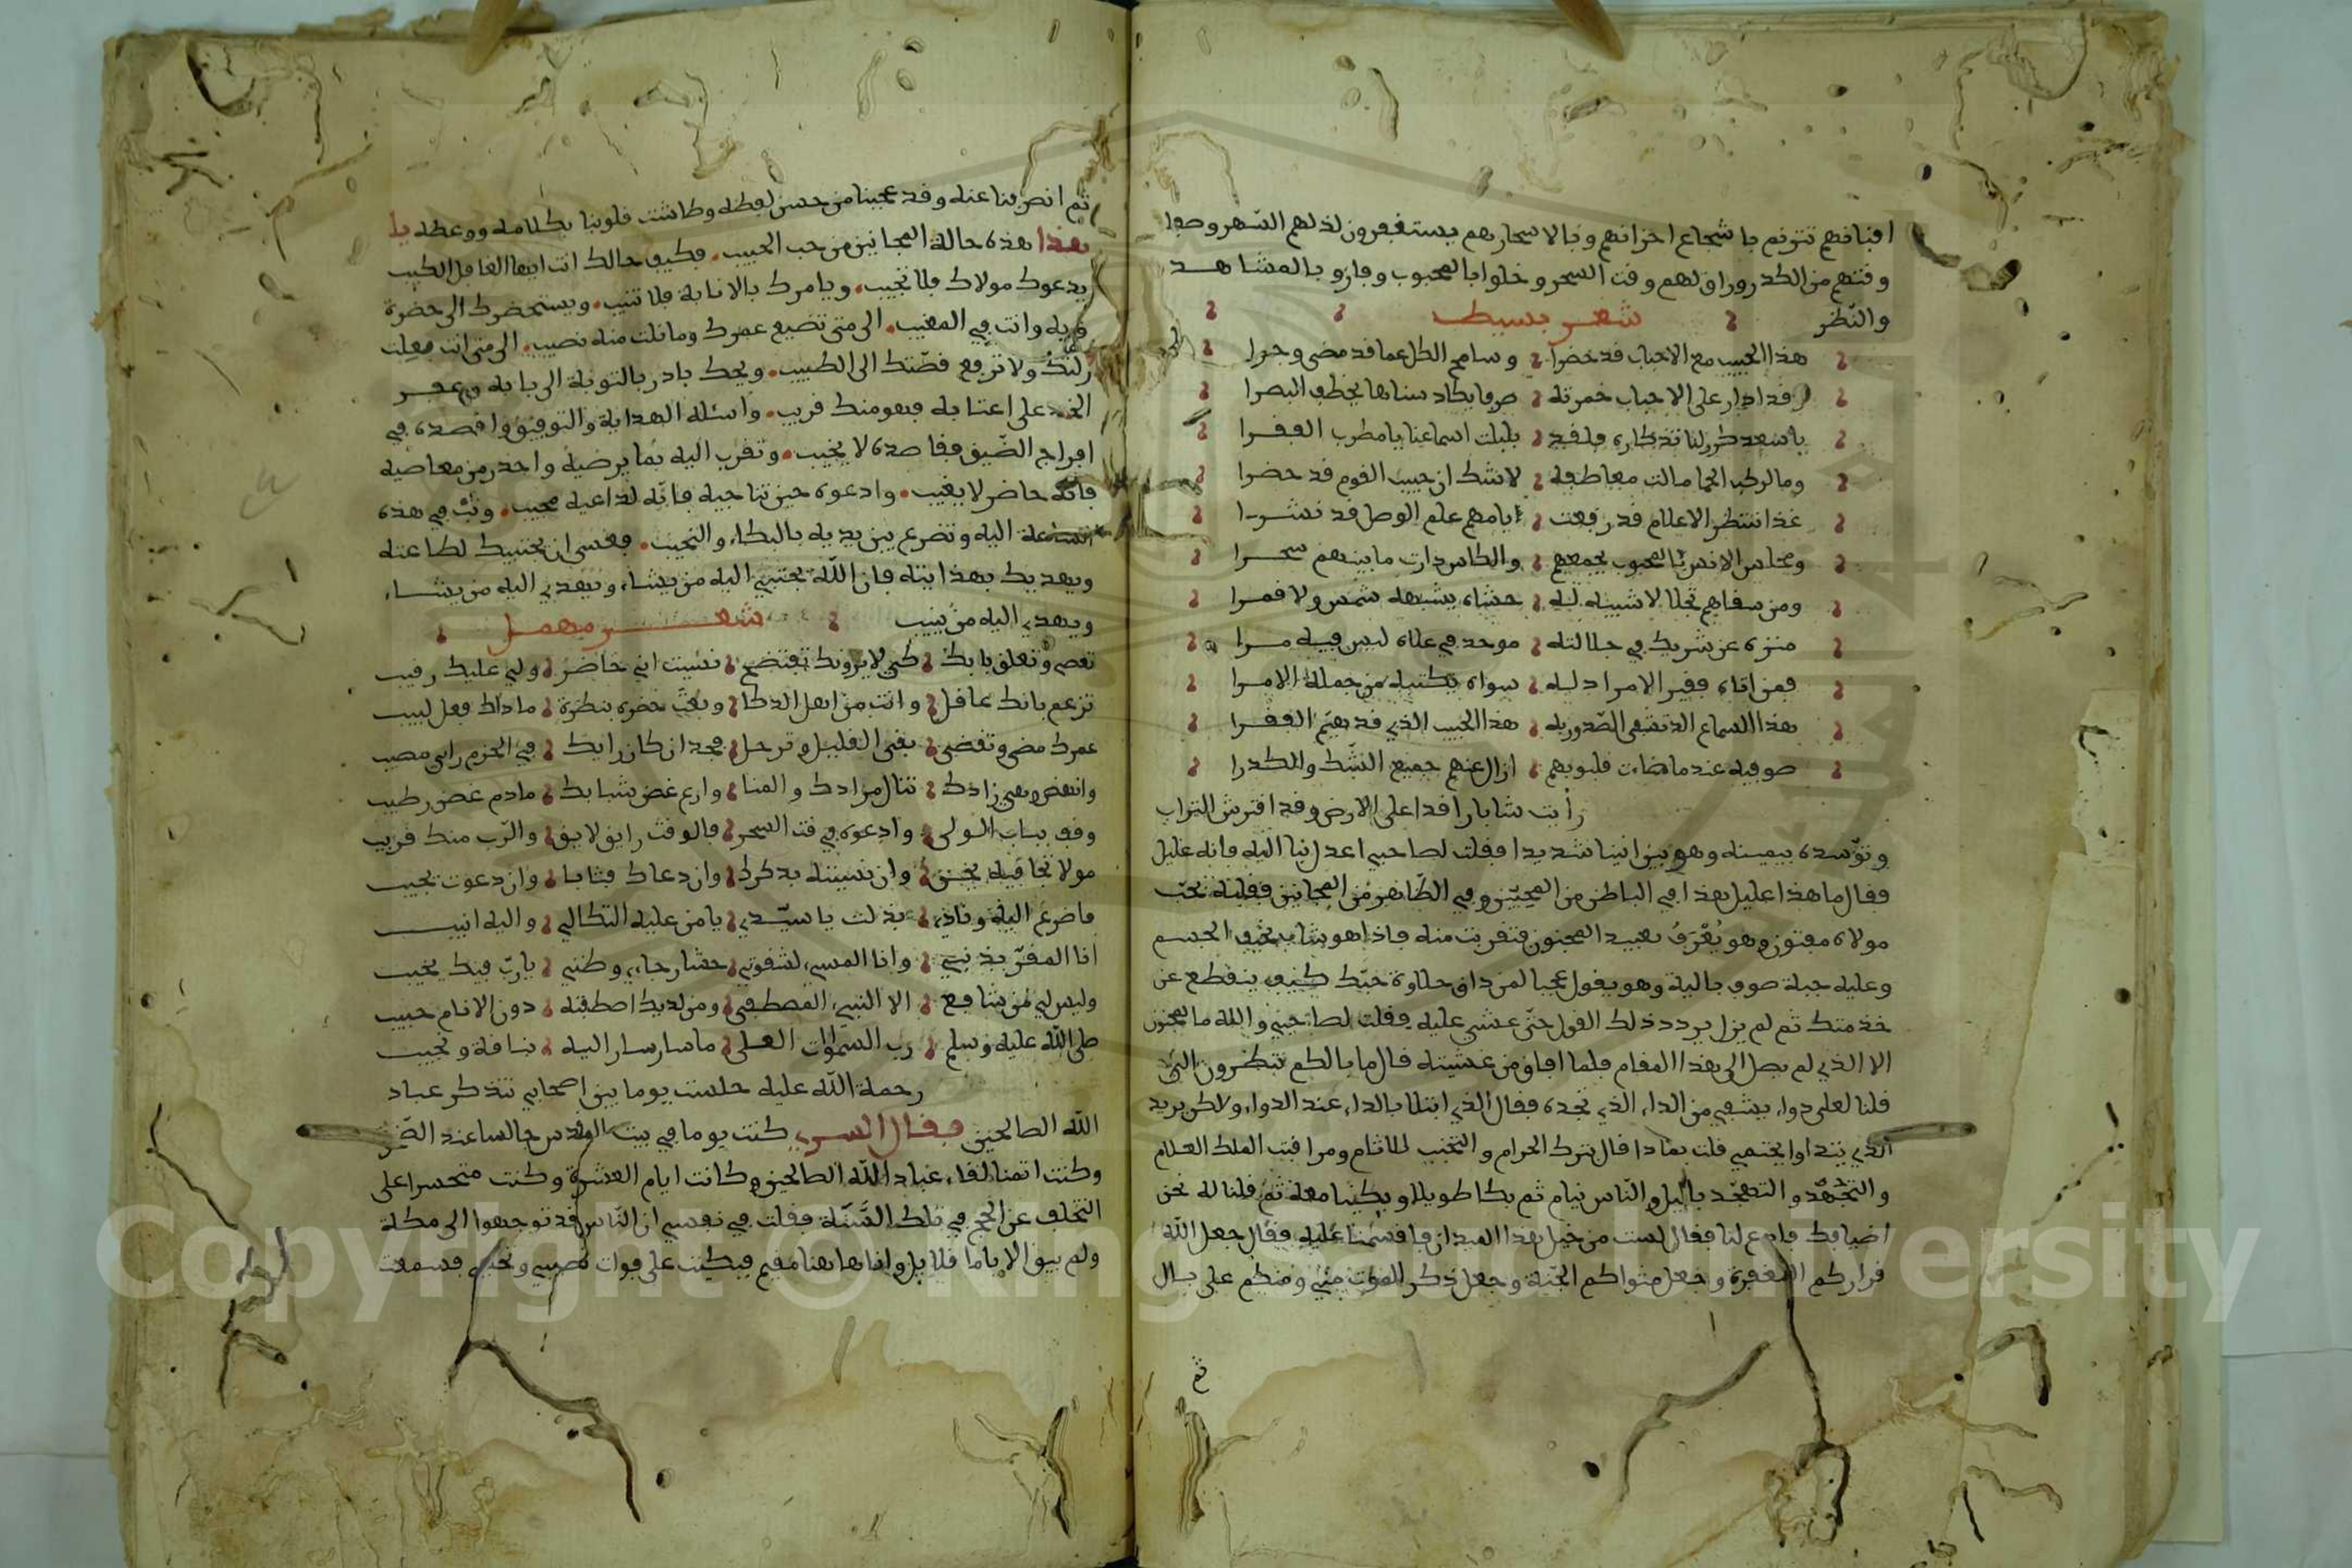 افنافهم تترنم باشجاع احزانهم وبالاسحار هم يستغفرون لذلهم السهر وصفا
وقتهم من الكدر وراق لهم وقت السحر وخلوا بالمحبوب وفازو بالمشاهد
والنظر شعر بسيط
هذا الحبيب مع الاحباب قد حضرا وسامح الكل عما قد مضى وجرا
وقد ادار على الاحباب خمرته صرفا يكاد سناها يخطف البصرا
يا سعد كرر لنا تذكاره فلقد بلبلت اسماعنا يا مطرب الفقرا
وما لركب الحما مالت معاطفه لا شك ان حبيب القوم قد حضرا
غدا ننتظر الاعلام قد رفعت امامهم علم الوصل قد نشرا
ومجلس الانس بالمحبوب يجمعهم والكاس دارت ما بينهم سحرا
ومن سقاهم تجلا لا شبيه له حشاه يشبهه شمس ولا قمرا
منزه عن شريك في جلالته موحد في علاه ليس فيه مرا
فمن اتاه فقير الامرا دليه سواه يكتبه من جملة الامرا
هذا السماع الذ تشفى الصدور به هذا الحبيب الذي قد هيم الفقرا
صوفيه عندما صفات قلوبهم ازال عنهم جميع الشك والكدرا
رأيت شابا راقدا على الارض وقد افترش التراب
وتوسده بيمينه وهو يئن انينا شديدا فقلت لصاحبي اعدل بنا اليه فانه عليل
فقال ما هذا عليل هذا في الباطن من المحبين وفي الظاهر من المجانين فقلبه بحب
مولاه مفتون وهو يعرف بعبيد المجنون فتقربت منه فاذا هو شاب نحيف الجسم
وعليه جبة صوف بالية وهو يقول عجبا لمن ذاق حلاوة حبك كيف ينقطع عن
خدمتك ثم لم يزل يردد ذلك القول حتى غشي عليه فقلت لصاحبي والله ما المجنون
الا الذي لم يصل الى هذا المقام فلما افاق من غشيته قال ما بالكم تنظرون الي
قلنا لعل دواء يشفي من الداء الذي تجده فقال الذي ابتلا بالداء عنده الدواء ولكن يريد
الذي يتداوا يحتمي قلت بماذا قال بترك الحرام والتجنب للاثام ومراقبت الملك العلام
والتجهد والتهجد بالليل والناس نيام ثم بكا طويلا وبكينا معه ثم قلنا له نحن
اضيافك فادع لنا فقال لست من خيل هذا الميدان فاقسمنا عليه فقال جعل الله
قراركم المغفرة وجعل مثواكم الجنة وجعل ذكر الموت مني ومنكم على بال
ثم
ثم انصرفنا عنه وقد عجبنا من حسن لفظه وطاشت قلوبنا بكلامه ووعظه يا
هذا هذه حالة المجانين من حب الحبيب فكيف حالك انت ايها الغافل الكيب
يدعوك مولاك فلا تجيب ويامرك بالانابة فلا تنيب ويستحضرك الى حضرة
قربه وانت في المغيب الى متى تضيع عمرك وما نلت منه نصيب الى متى انت
زلتك ولا ترفع قصتك الى الطبيب ويحك بادر بالتوبة الى بابه وعفر
الخد على اعتابه فهو منك قريب واسئله الهداية والتوفيق واقصده في
افراج الضيق فقاصده لا يخيب وتقرب اليه بما يرضيه واحذر من معاصيه
فانه حاضر لا يغيب وادعوه حين تناجيه فانه لداعيه مجيب وتب في هذه
الساعة اليه وتضرع بين يديه بالبكاء والنحيب فعسى ان يجتبيك لطاعته
ويهديك بهدايته فان الله يجتبي اليه من يشاء ويهدي اليه من يشاء
ويهدي اليه من ينيب شعر مهمل
تعص وتغلق بابك كي لا يرونك تفتضح نسيت اني حاضر ولي عليك رقيب
تزعم بانك عاقل وانت من اهل الذكا وبعت حضره بنظرة ماذاك فعل لبيب
عمرك مضى وتقضى بقى القليل وترحل فجد ان كان رايك في الحزم راي مصيب
وانهض وهي زادك تنال مرادك والمنا وارع غض شبابك مادم غصن رطيب
وقف بباب المولى وادعوه في وقت السحر فالوقت رايق لايق والرب منك قريب
مولا تجافيه يحسن وان نسيته يذكرك وان دعاك فتابا وان دعوت يجيب
فاضرع اليه وناد بذلت يا سيدي يا من عليه اتكالي واليه انيب
انا المقر بذنبي وانا المسي لشقوتي حشا رجاءي وظني يا رب فيك يخيب
وليس لي من شافع الا النبي المصطفى ومن لديك اصطفيته دون الانام حبيب
صلى الله عليه وسلم رب السموات العلى ما سار سار اليه بناقة ونجيب
رحمة الله عليه جلست يوما بين اصحابي نتذكر عباد
الله الصالحين فقال السري كنت يوما في بيت المقدس جالسا عند الصخر
وكنت اتمنا لقاء عباد الله الصالحين وكانت ايام العشرة وكنت متحسرا على
التخلف عن الحج في تلك السنة فقلت في نفسي ان الناس قد توجهوا الى مكة
ولم يبق الا ياما قلايل وانا هاهنا مقيم فبكيت على فوات نصيبي ونحبي فسمعت
Copyright © King Saud University